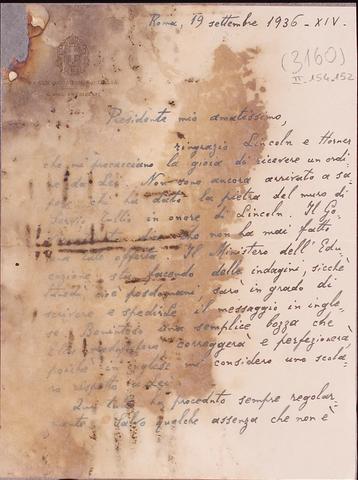 Roma, 19 settembre 1936 - XIV.
(3160)
II. 154, 152
Presidente mio amatissimo,
ringrazio Lincoln e Horner
che mi procacciano la gioia di ricevere un ordi-
ne da Lei. Non sono ancora arrivato a sa-
chi ha dato la pietra del muro di
Servio Tullio in onore di Lincoln. Il Go-
che non ha mai fatto
una tale offerta. Il Ministero dell'Edu-
cazione sta facendo delle indagini, sicchè
lunedì cioè posdomani sarò in grado di
scrivere e spedirle il messaggio in ingle-
se. Beninteso una semplice bozza che
correggerà e perfezionerà
poichè in inglese mi considero uno scola-
ro rispetto a Lei.
Qui tutto ha proceduto sempre regolar-
mente. Salvo qualche assenza che non è